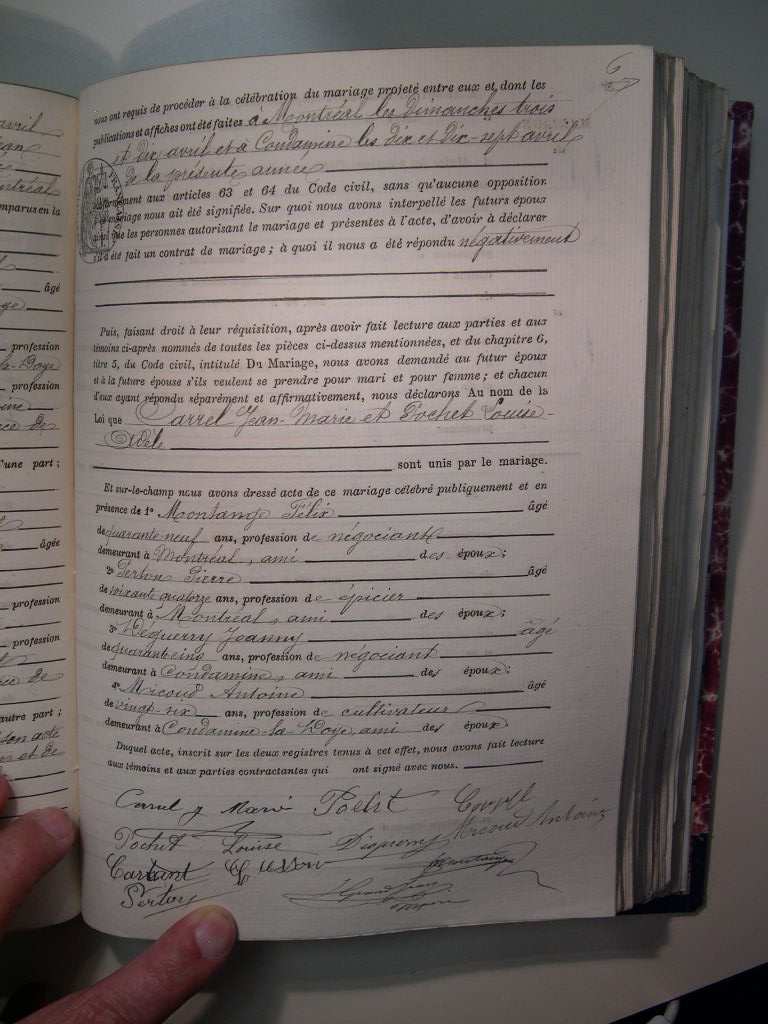 avril
Montréal
comparus en la
âgé
profession
la-Doye
profession
ce de
'une part ;
âgée
profession
profession
ce de
autre part ;
son acte
et de
6
nous ont requis de procéder à la célébration du mariage projeté entre eux et dont les
publications et affiches ont été faites à Montréal les dimanches trois
et dix avril et à Condamine les dix et dix-sept avril
de la présente année
aux articles 63 et 64 du Code civil, sans qu'aucune opposition
mariage nous ait été signifiée. Sur quoi nous avons interpellé les futurs époux
que les personnes autorisant le mariage et présentes à l'acte, d'avoir à déclarer
s'il a été fait un contrat de mariage ; à quoi il nous a été répondu négativement
Puis, faisant droit à leur réquisition, après avoir fait lecture aux parties et aux
témoins ci-après nommés de toutes les pièces ci-dessus mentionnées, et du chapitre 6,
titre 5, du Code civil, intitulé Du Mariage, nous avons demandé au futur époux
et à la future épouse s'ils veulent se prendre pour mari et pour femme ; et chacun
d'eux ayant répondu séparément et affirmativement, nous déclarons Au nom de la
Loi que Carrel Jean-Marie et Pochet Louise-
Adèle
sont unis par le mariage.
Et sur-le-champ nous avons dressé acte de ce mariage célébré publiquement et en
présence de 1° Montange Félix âgé
de quarante neuf ans, profession de négociant
demeurant à Montréal, ami des époux ;
2° Perton Pierre âgé
de soixante quatorze ans, profession de épicier
demeurant à Montréal, ami des époux ;
3° Déguerry Jeanny âgé
de quarante cinq ans, profession de négociant
demeurant à Condamine, ami des époux ;
4° Micoud Antoine âgé
de vingt-six ans, profession de cultivateur
demeurant à Condamine-la-Doye, ami des époux
Duquel acte, inscrit sur les deux registres tenus à cet effet, nous avons fait lecture
aux témoins et aux parties contractantes qui ont signé avec nous.
Carrel J Marie Pochet
Pochet Louise Micoud Antoine
Perton